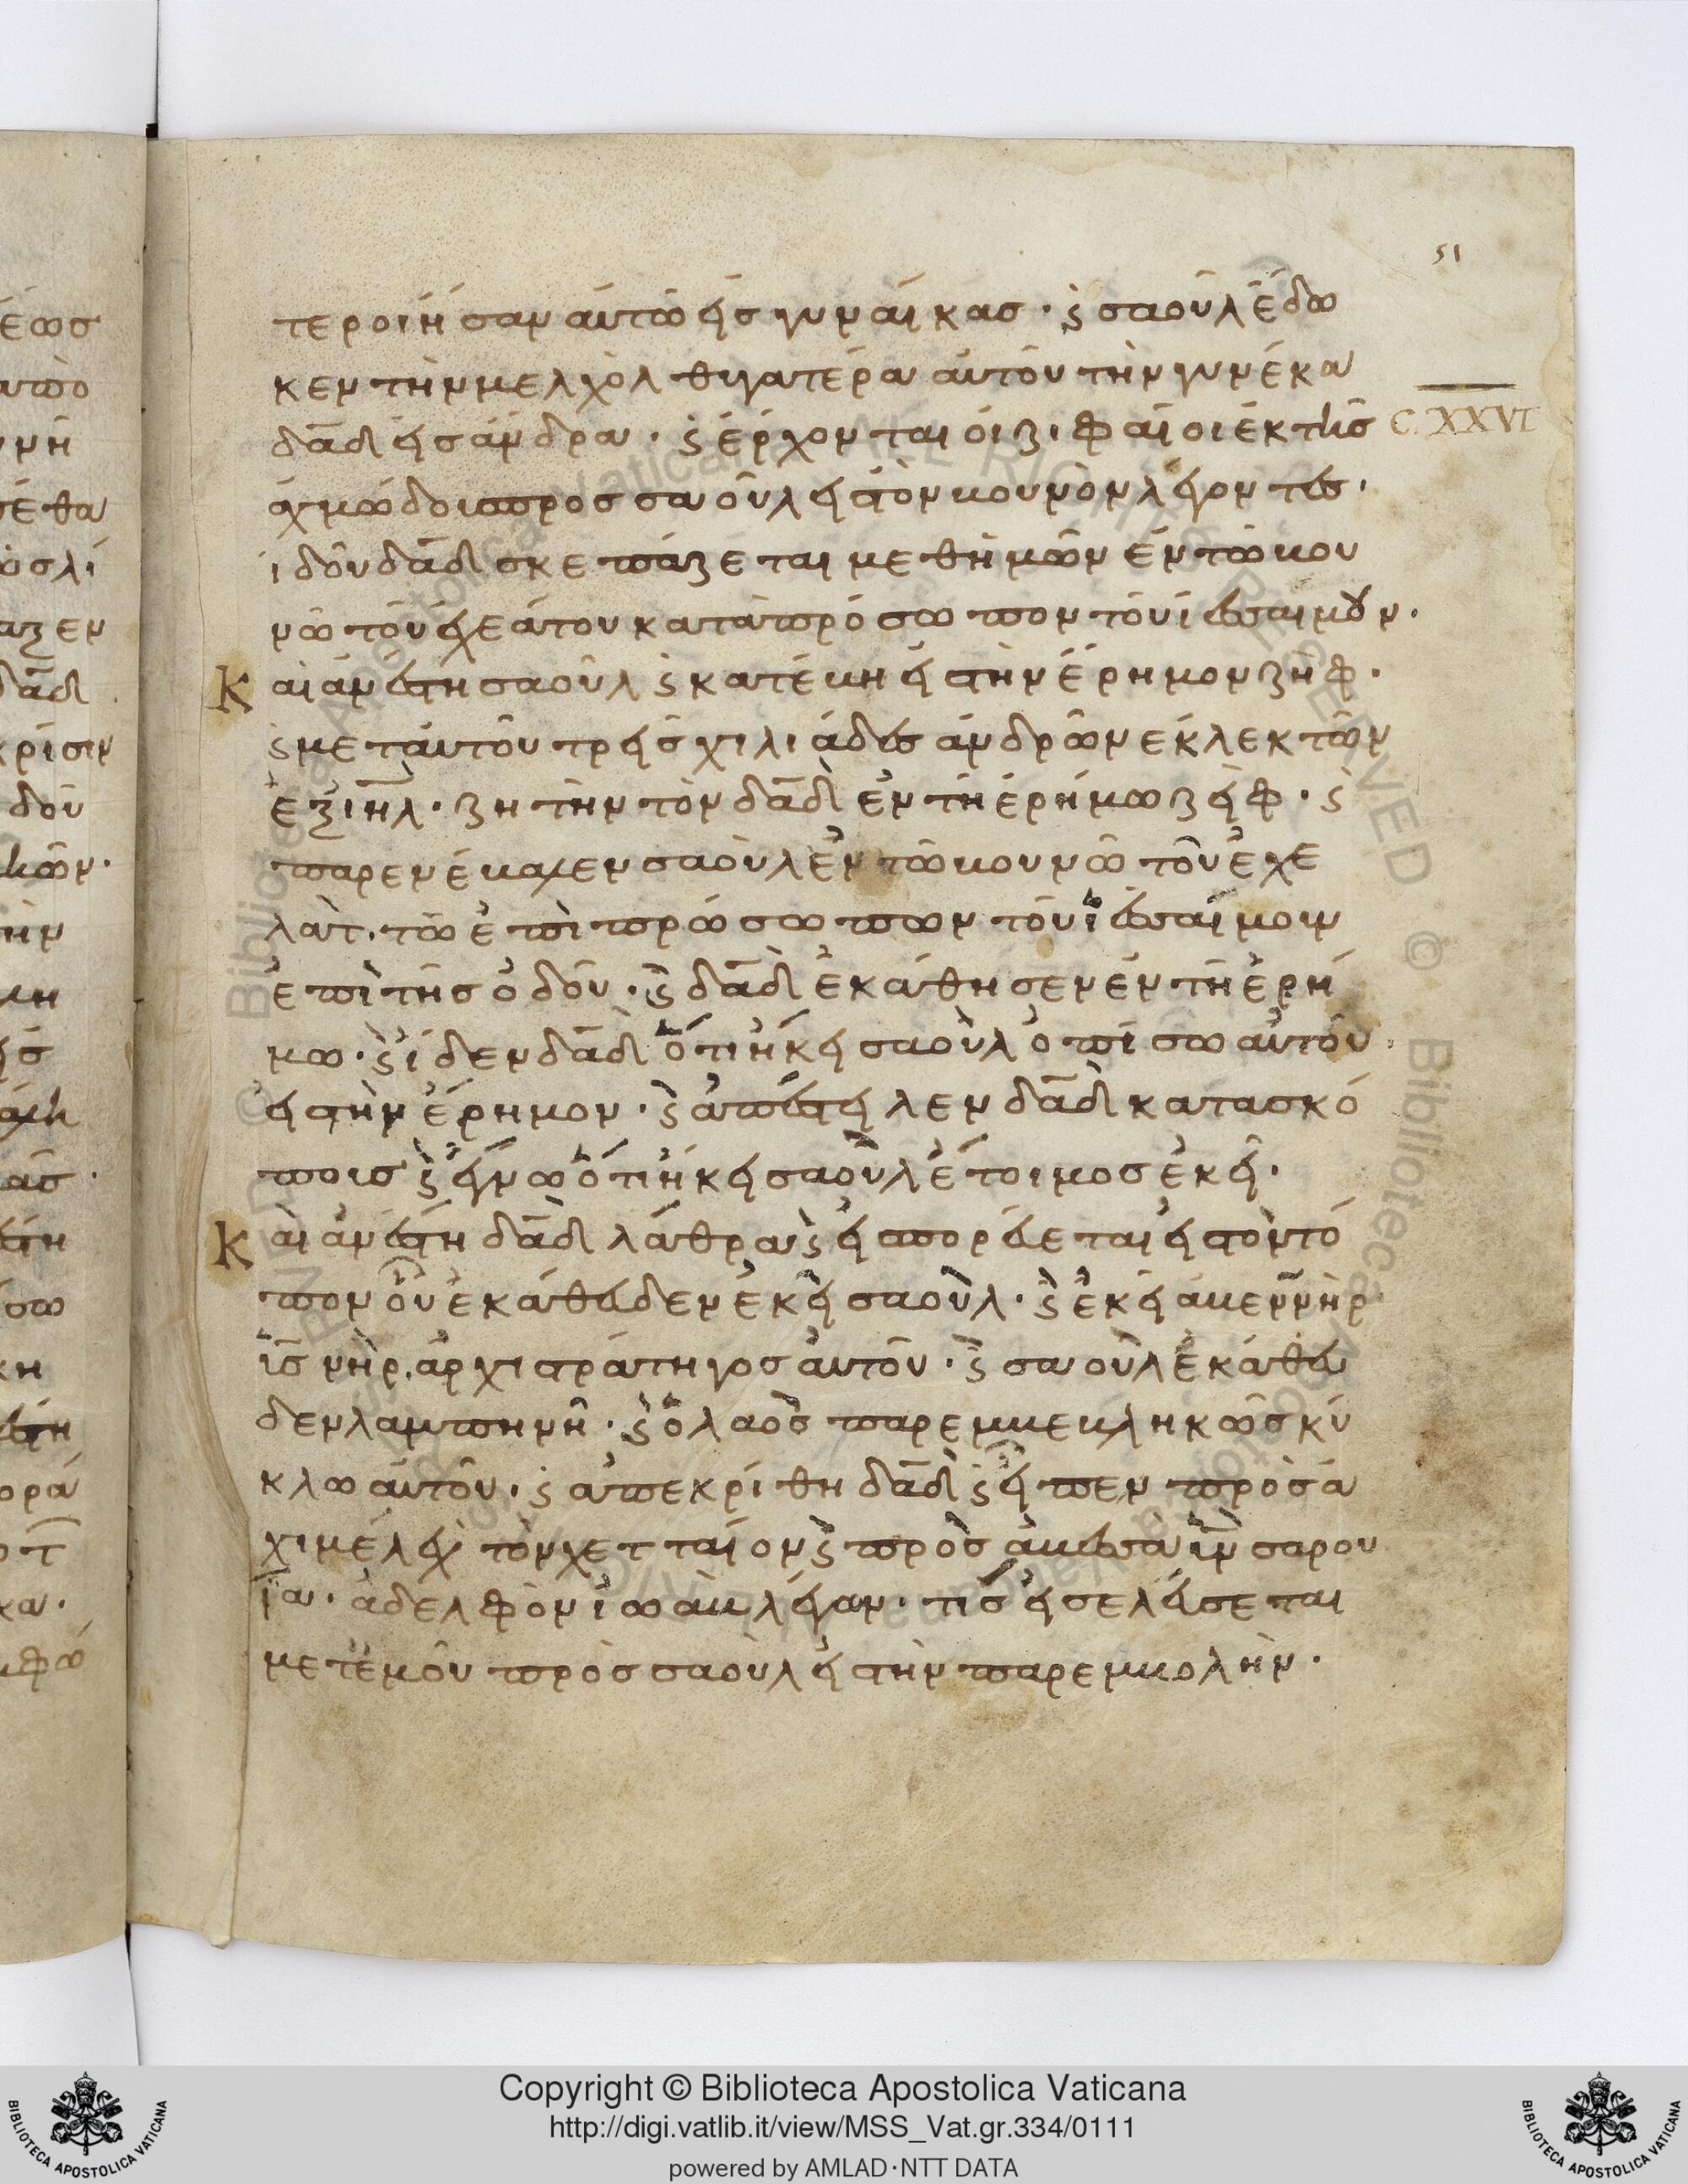 51
τεροιήσαν ἀυτῶ εἰσ γυναίκασ· ϛ σαοῦλ ἔδω
κεν τὴν μελχὸλ θυγατέρα αὐτοῦ τὴν γυνέκα
δᾱδ εἰσ ἄνδρα· ϛ ἔρχονται οἱ ζιφαῖοι ἐκ τῆσ
C. XXVI
ἀχμώδοι προσ σαοῦλ εἰσ τὸν βουνὸν λέγοντεσ·
ἰδοῦ δᾱδ σκεπάζεται μεθ ἡμῶν ἐν τῶ βου
νῶ τοῦ ἐχεάτου κατὰ πρόσωπον τοῦ ἰεσσαιμοὺν·
Καὶ ἀνέστη σαοῦλ ϛ κατέβη εἰσ τὴν ἔρημον ζὴφ·
ϛ μετ ἀυτοῦ τρεῖσ χιλιάδεσ ἀνδρῶν ἐκλεκτῶν
ἐξ ιηλ· ζητὴν τὸν δᾱδ ἐν τῆ ἐρήμω ζεὶφ· ϛ
παρενέβαλεν σαοὺλ ἐν τῶ βουνῶ τοῦ ἐχε
λὰτ· τῶ ἐπὶ πρώσωπων τοῦ ἰεσσαίμοιν
ἐπὶ τῆσ ὁδοῦ· ϛ δᾱδ ἐκάθησεν ἐν τῆ ἐρή
μω· ϛ ἴδεν δᾱδ ὅτι ἥκει σαοὺλ ὀπίσω αὐτοῦ
εἰσ τὴν ἔρημον· ϛ ἀπέστειλεν δᾱδ κατασκό
ποισ ϛ ἔγνω ὅτι ἥκει σαοῦλ ἕτοιμοσ ἐκεῖ·
Καὶ ἀνέστη δᾱδ λάθρα ϛ εἰσπορέυεται εἰσ τὸν τό
πον οὗ ἐκάθευδεν ἐκεῖ σαοὺλ· ϛ ἐκεῖ ἀβεννὴρ
ῡσ νὴρ, ἀρχιστράτηγοσ ἀυτοῦ· ϛ σαοὺλ ἐκάθευ
δεν λαμπηνῆ· ϛ ὁ λαὸσ παρεμβεβληκῶσ κύ
κλω ἀυτοῦ· ϛ ἀπεκρίθη δᾱδ ϛ εἶπεν πρὸσ ἀ
χιμέλεχ τὸν χετταίον ϛ πρὸσ ἀβεσσὰ ῡν σαρου
ΐα· ἀδελφὸν ἰωὰβ λέγων· τίσ εἰσελέυσεται
μετ ἐμοῦ πρὸσ σαοὺλ εἰσ τὴν παρεμβολὴν·
Copyright © Biblioteca Apostolica Vaticana
http://digi.vatlib.it/view/MSS_Vat.gr.334/0111
powered by AMLAD·NTT DATA
BIBLIOTECA APOSTOLICA VATICANA
BIBLIOTECA APOSTOLICA VATICANA